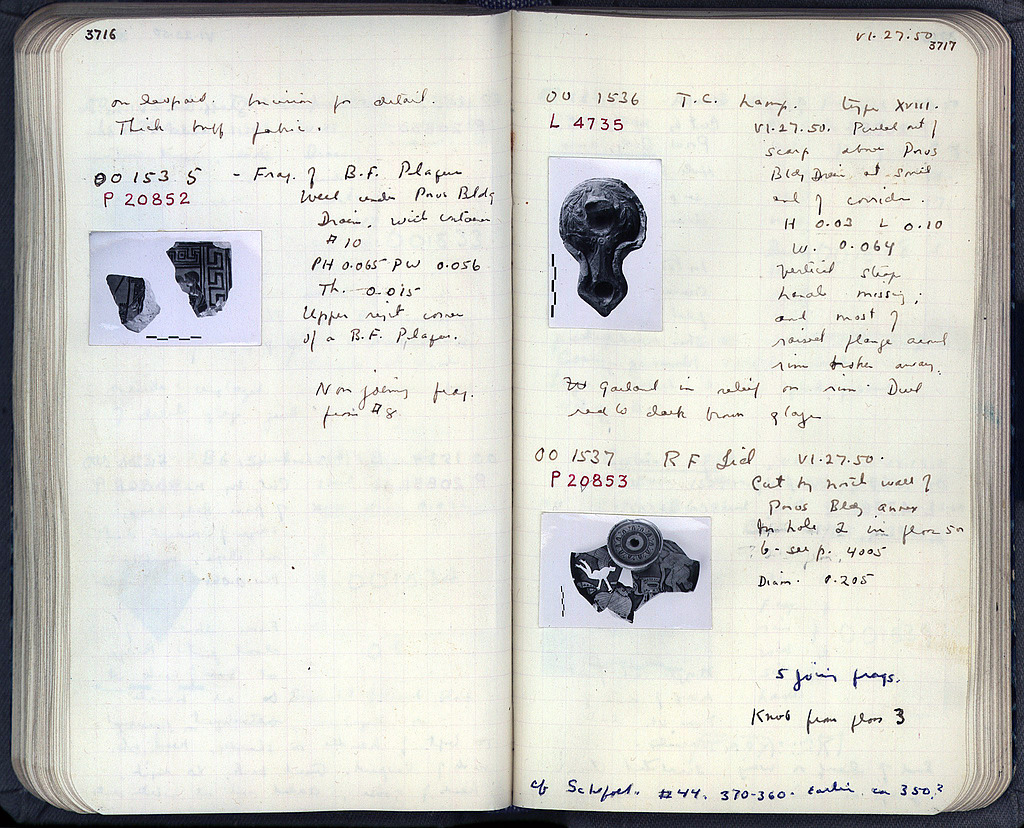 3716
on leopard. Incision for detail.
Thick buff fabric.
OO 1535 - Frag. of B.F. Plaque
P 20852
Well under Poros Bldg
Drain, with container
#10
PH 0.065 PW 0.056
Th. 0.015
Upper right corner
of a B.F. Plaque.
Non joining frag.
from #8
VI.27.50
3717
OO 1536 T.C. Lamp. Type XVIII.
L 4735
VI.27.50. Pulled out of
scarp above Poros
Bldg Drain, at south
end of corridor.
H 0.03 L 0.10
W. 0.064
Vertical strap
handle missing;
and most of
raised flange around
rim broken away.
Garland in relief on rim Dull
red to dark brown glaze
OO 1537 RF Lid VI.27.50.
P 20853
Cut by north wall of
Poros Bldg annex
In hole 2 in floor 5a
?6 - see p. 4005
Diam. 0.205
5 joining frags.
Knob from floor 3
cf Schefold. #44. 370-360. earlier, ca 350.?